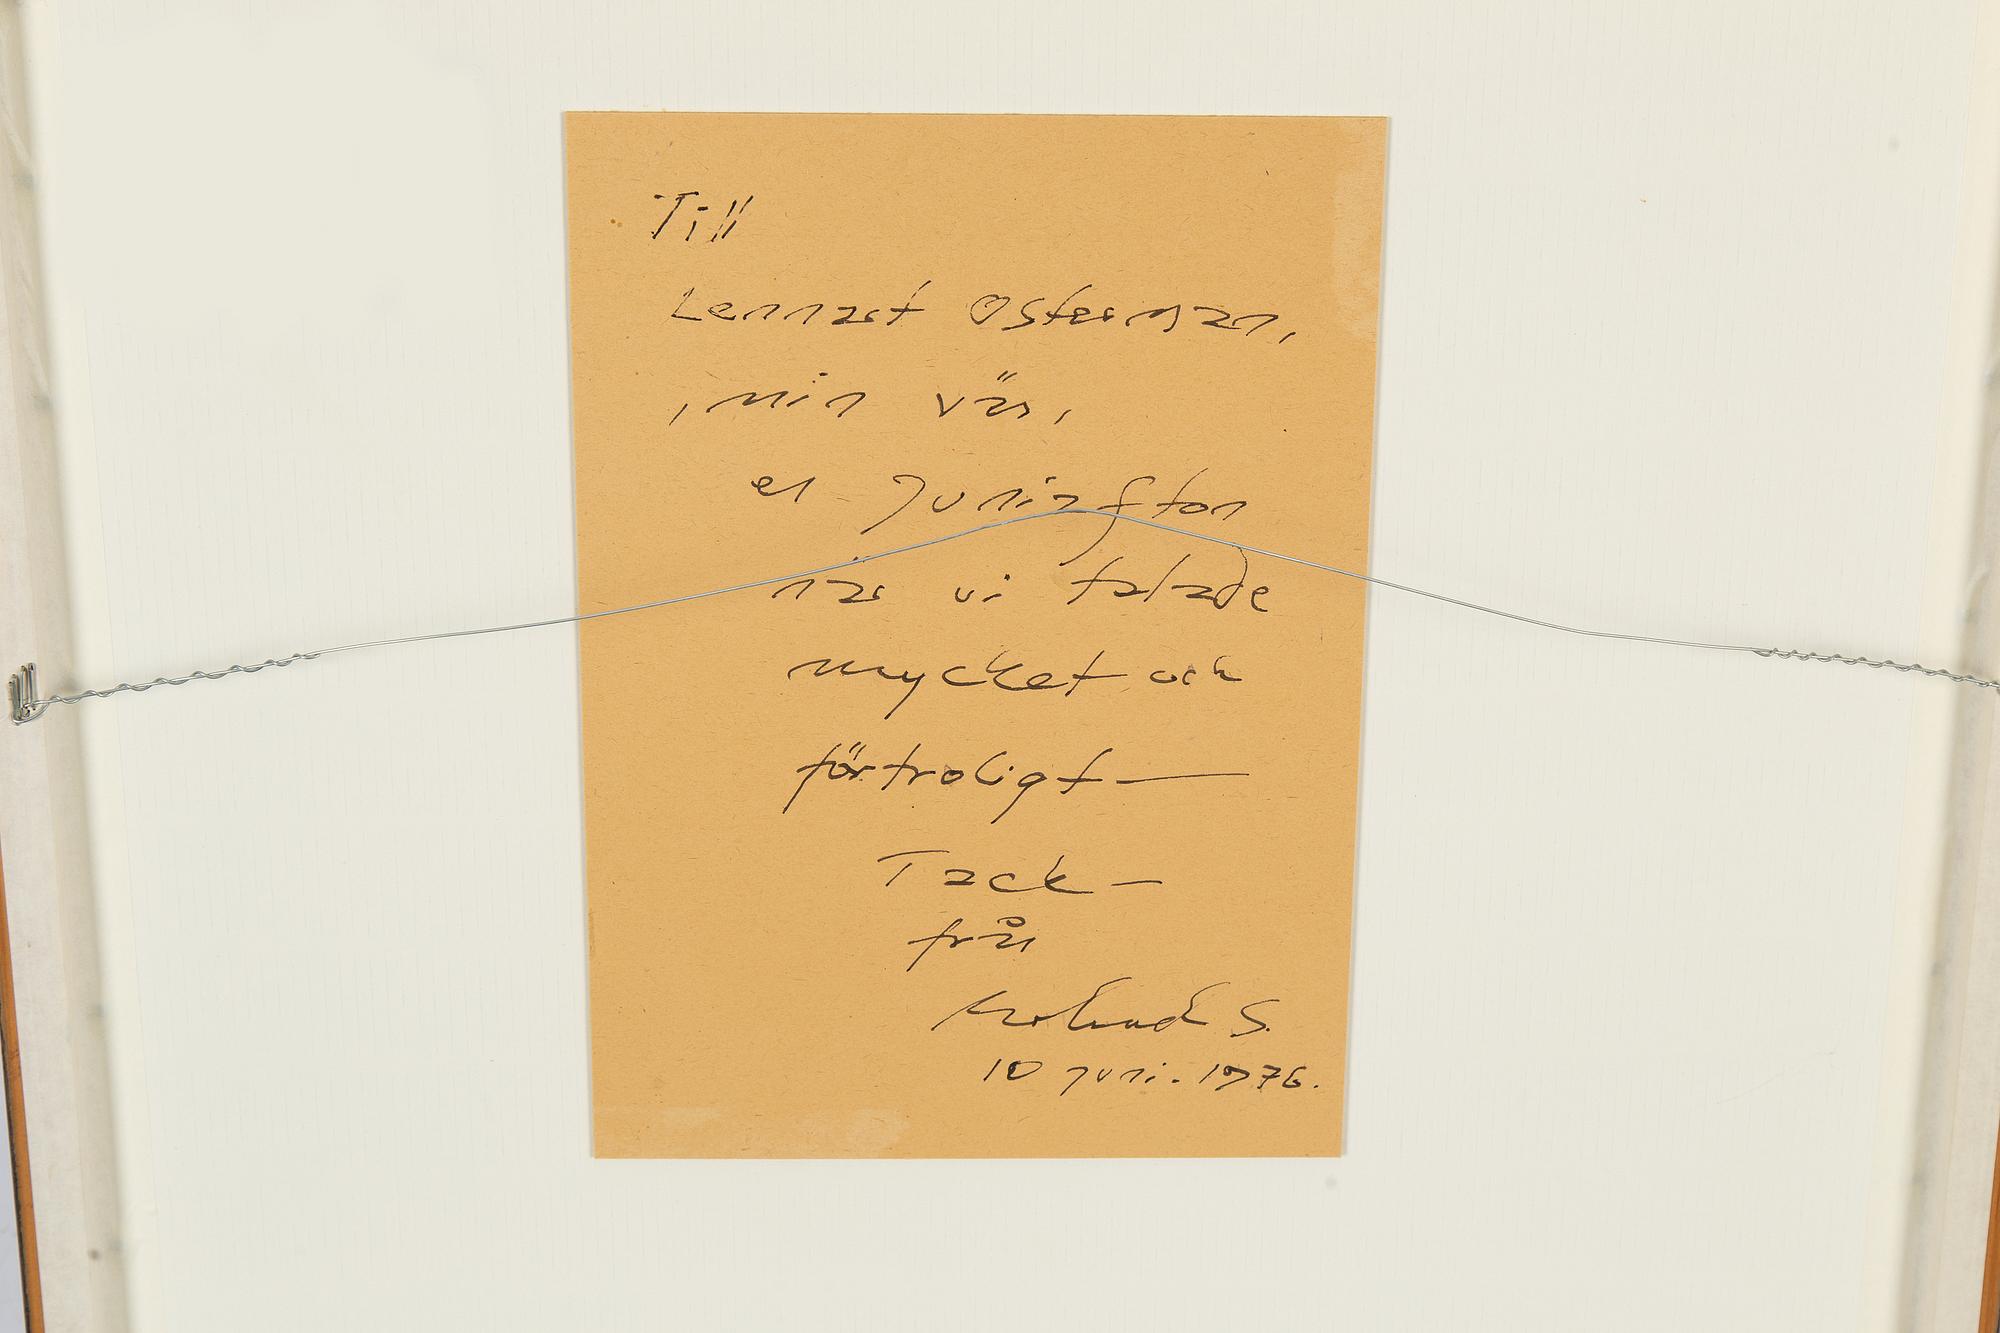 Till
Lennart Osterman,
, min vän,
en Juniafton
när vi talade
mycket och
förtroligt —
Tack —
från
Roland S.
10 juni. 1976.